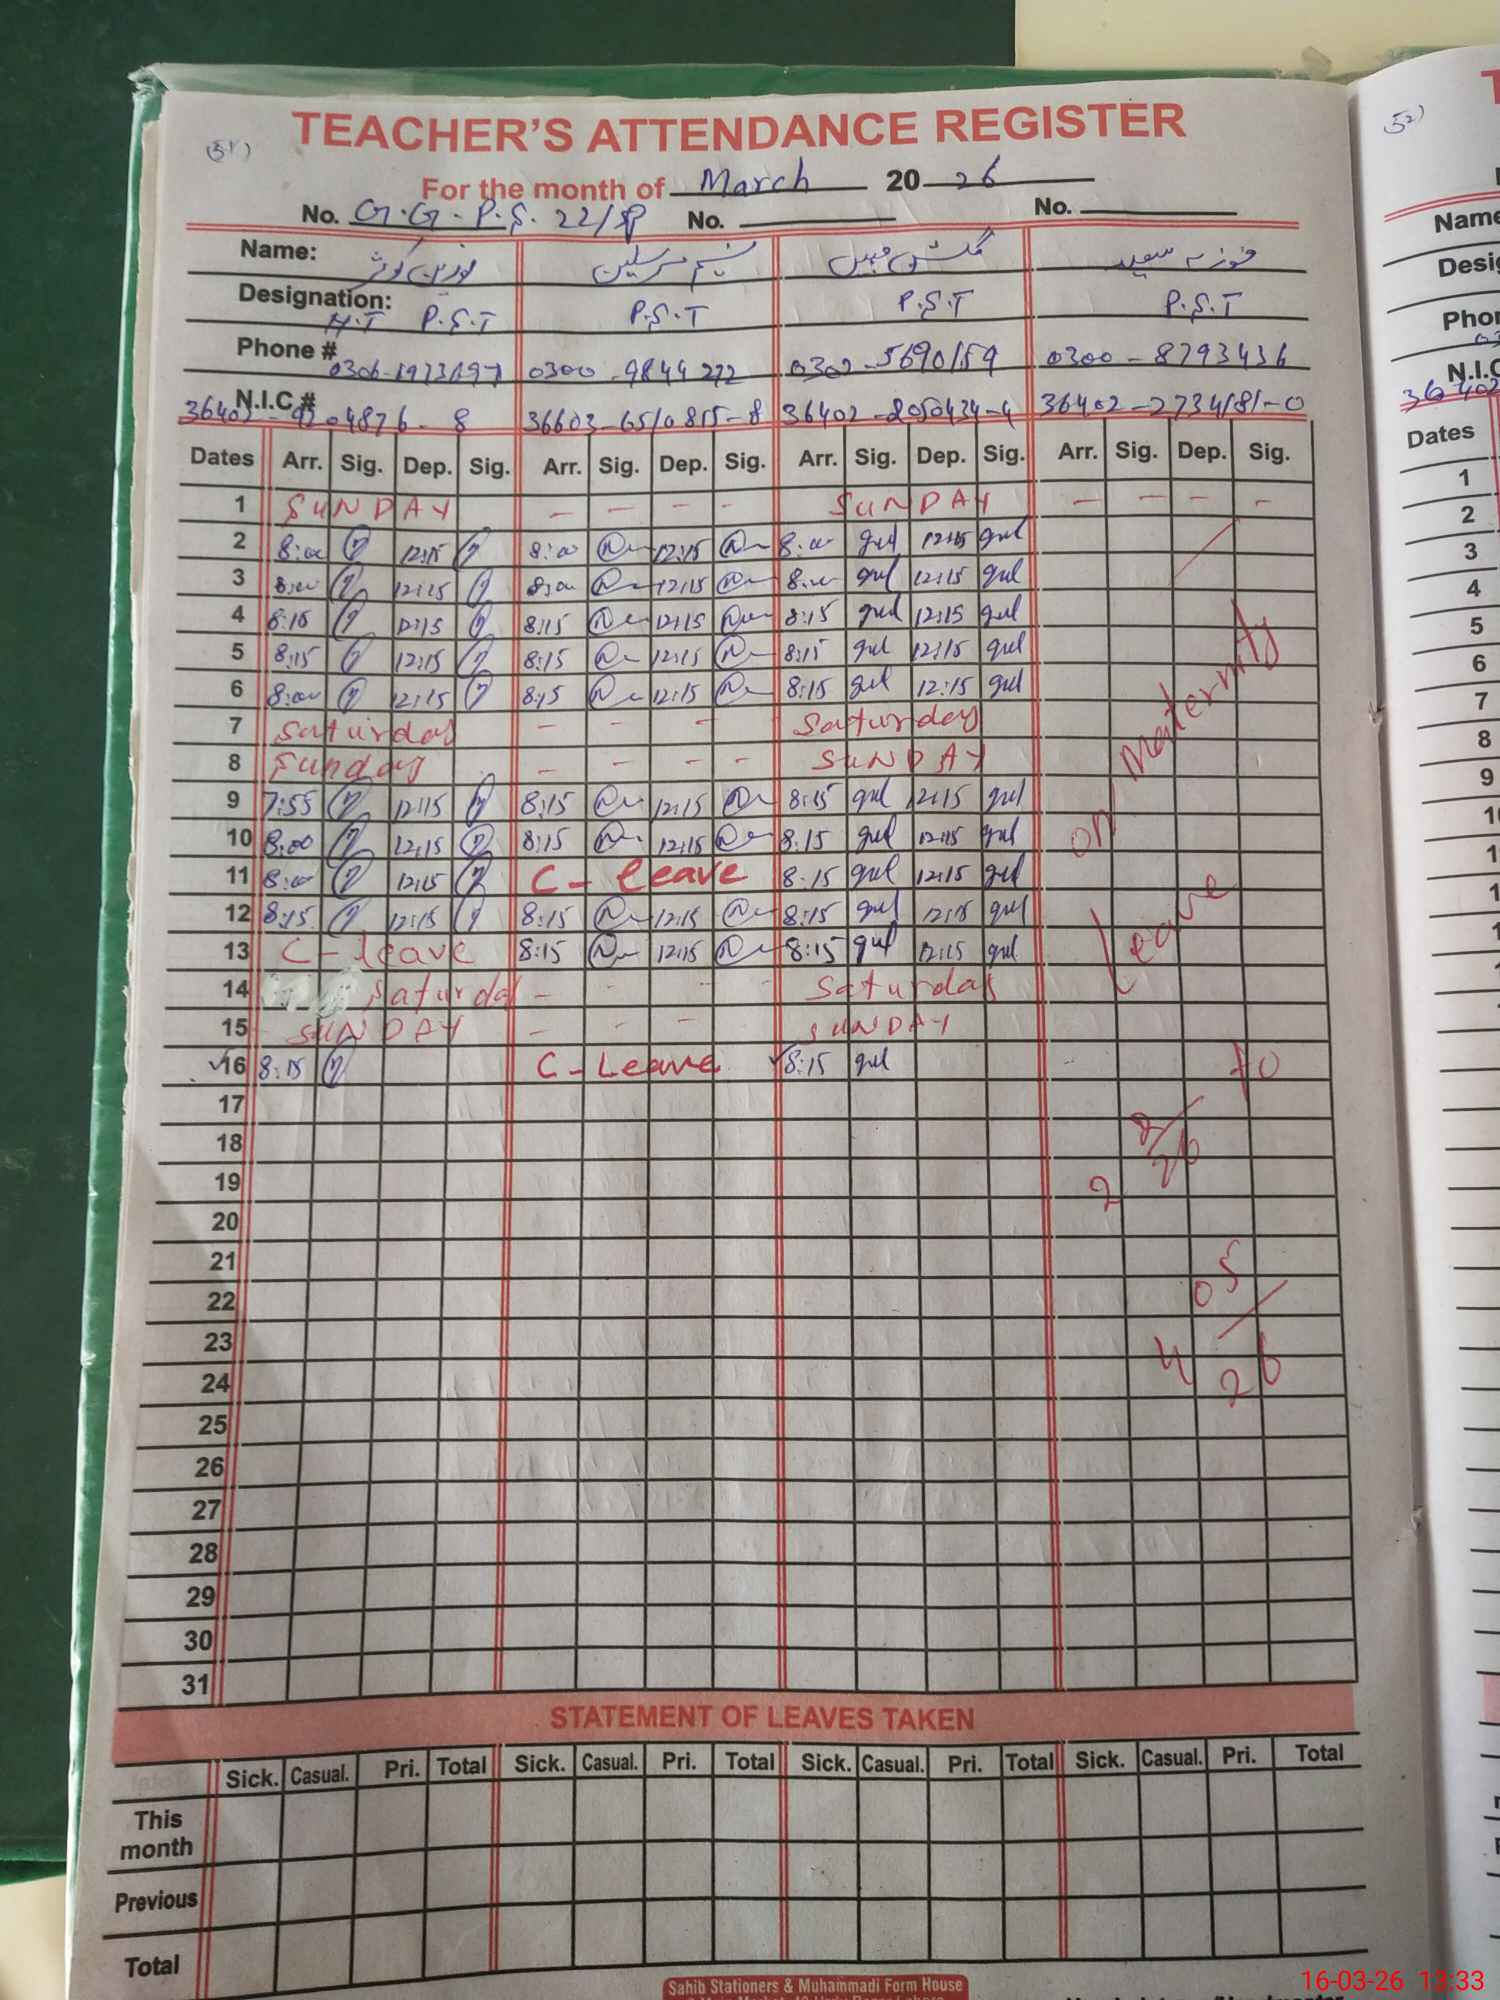 (51)
TEACHER'S ATTENDANCE REGISTER
For the month of March 2026
No. G.G.P.S. 22/SP No. No.
Name: نسیم مرسلین گلشن فوزیہ سعید
Designation: H.T P.S.T P.S.T P.S.T P.S.T
Phone # 0300-9844272 0302-5690159 0300-8793436
N.I.C # 36402-9204876-8 36603-6510815-8 36402-2050434-4 36402-2734181-0
Dates Arr. Sig. Dep. Sig. Arr. Sig. Dep. Sig. Arr. Sig. Dep. Sig. Arr. Sig. Dep. Sig.
1 SUNDAY - - - - SUNDAY - - - -
2 8:00 12:15 8:00 12:15 8:00 gul 12:15 gul
3 8:00 12:15 8:00 12:15 8:00 gul 12:15 gul
4 8:15 12:15 8:15 12:15 8:15 gul 12:15 gul
5 8:15 12:15 8:15 12:15 8:15 gul 12:15 gul
6 8:00 12:15 8:15 12:15 8:15 gul 12:15 gul
7 Saturday - - - Saturday
8 Sunday - - - - SUNDAY
9 7:55 12:15 8:15 12:15 8:15 gul 12:15 gul
10 8:00 12:15 8:15 12:15 8:15 gul 12:15 gul
11 8:00 12:15 C-leave 8:15 gul 12:15 gul
12 8:15 12:15 8:15 12:15 8:15 gul 12:15 gul
13 C-leave 8:15 12:15 8:15 gul 12:15 gul
14 Saturday - - - - Saturday
15 SUNDAY - - - SUNDAY
16 8:15 C-Leave 8:15 gul
17
18
19
20
21
22
23
24
25
26
27
28
29
30
31
on Maternity
leave
to
2 2/26
4 05/26
STATEMENT OF LEAVES TAKEN
Sick. Casual. Pri. Total Sick. Casual. Pri. Total Sick. Casual. Pri. Total Sick. Casual. Pri. Total
This month
Previous
Total
Sahib Stationers & Muhammadi Form House
52)
Name
Desig
Phon
N.I.C
36402
Dates
1
2
3
4
5
6
7
8
9
16-03-26 13:33